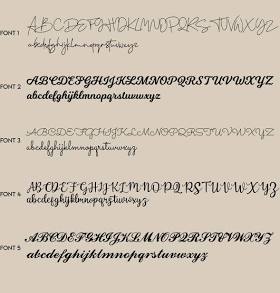 FONT 1
ABCDEFGHIJKLMNOPQRSTUVWXYZ
abcdefghijklmnopqrstuvwxyz
FONT 2
ABCDEFGHIJKLMNOPQRSTUVWXYZ
abcdefghijklmnopqrstuvwxyz
FONT 3
ABCDEFGHIJKLMNOPQRSTUVWXYZ
abcdefghijklmnopqrstuvwxyz
FONT 4
ABCDEFGHIJKLMNOPQRSTUVWXYZ
abcdefghijklmnopqrstuvwxyz
FONT 5
ABCDEFGHIJKLMNOPQRSTUVWXYZ
abcdefghijklmnopqrstuvwxyz